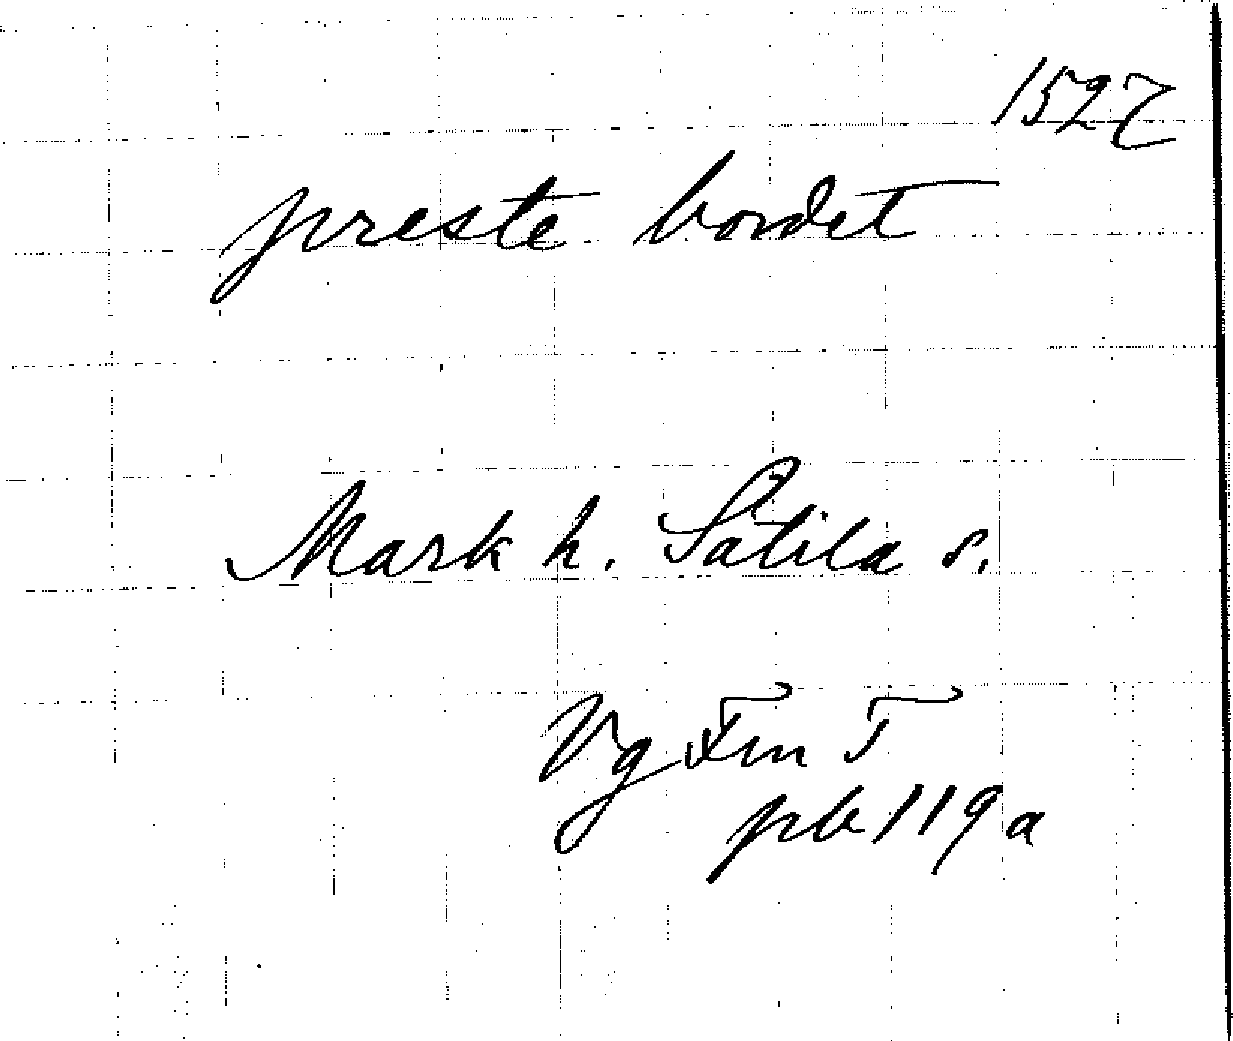 1527
preste bordet
Mark h. Sätila s.
Vg Fm T
pb 119 a